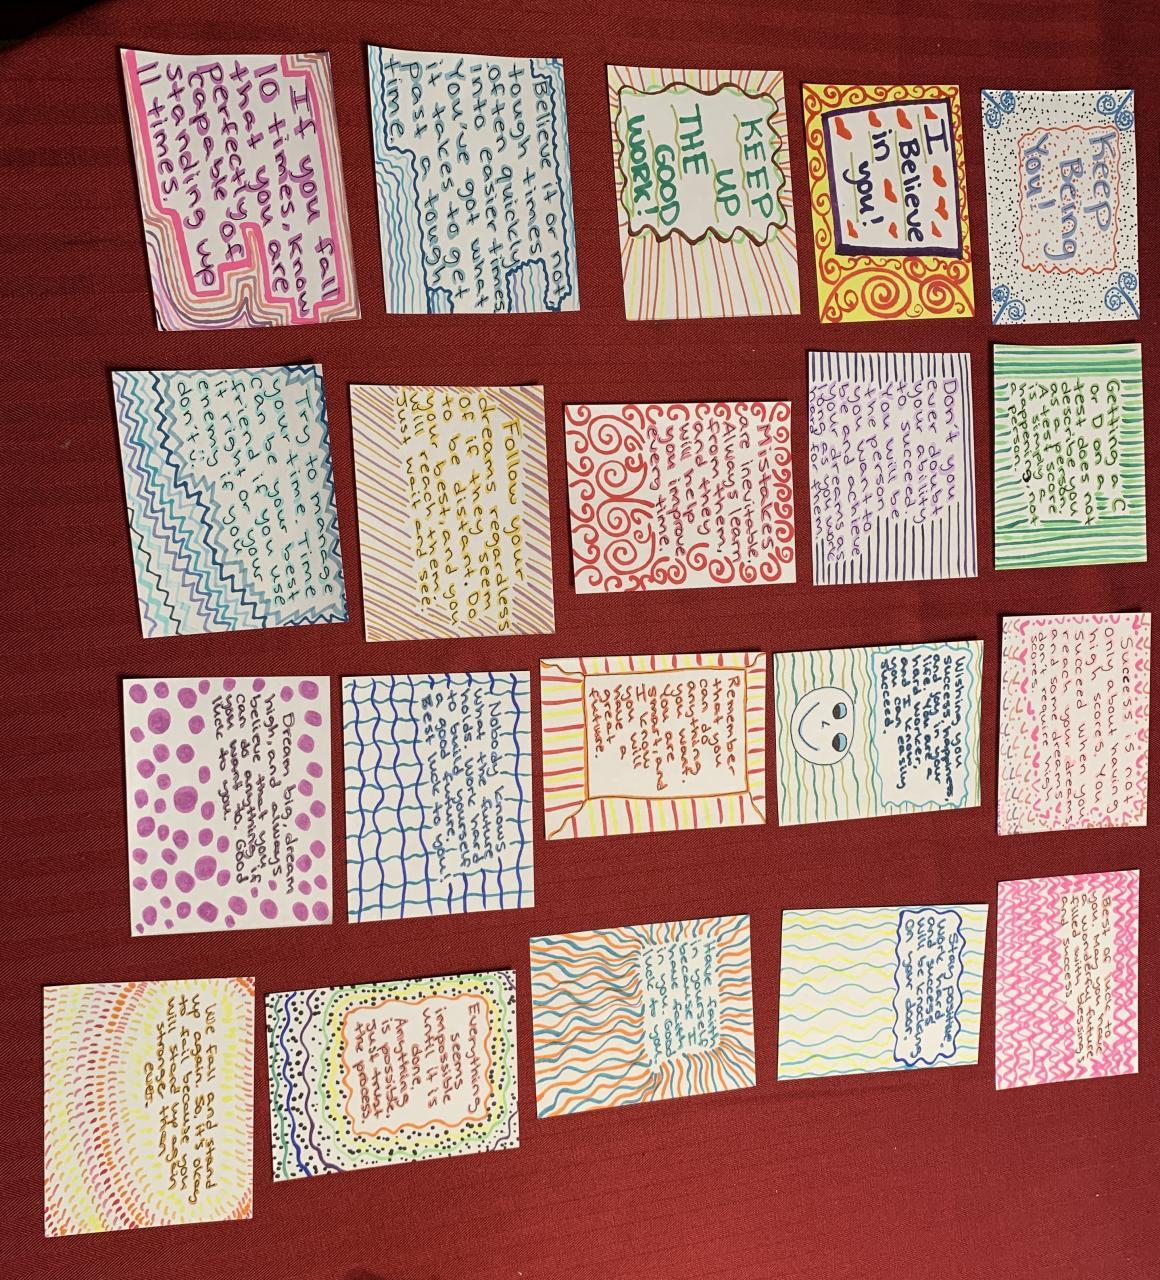 Keep
Being
You!
Getting a C
or D on a
test does not
describe you
as a person.
A test is
simply a
paper, not
a person.
Success is not
only about having
high scores. You
succeed when you
reach your dreams,
and some dreams
don't require high
score.
Best of lucke to
you. May you have
a wonderful future
filled with blessing
and success
I
Believe
in
you!
Don't you doubt
ever doubt
your ability
to succeed.
You will be
the person
you want to
be and achieve
your dreams as
long as you work
hard for them.
Wishing you
success, happiness
and joy in your
life. You are a
hard worker,
and I honestly
know
you can
succeed.
Stay positive
work hard
and success
will be knocking
on your door.
KEEP
UP
THE
GOOD
WORK!
Mistakes
are inevitable.
Always learn
from them,
and they
will help
you improve
every time.
Remember
that you
can do
anything
you want.
You are
smart, and
I know
you will
have a
great
future
Have faith
in yourself
because I
have faith
in you. Good
luck to you
Believe it or not,
tough times
often quickly
into easier times
You've got what
it takes to get
past a tough
time
Follow your
dreams regardless
of if they seem
to be distant. Do
your best, and you
will reach them.
Just wait and see!
Nobody knows
what the future
holds. Work hard
to build yourself
a good future!
Best luck to you!
Everything
seems
impossible
until it is
done.
Anything
is possible.
Just trust
the process
If you fall
10 times, know
that you are
perfectly of
capable
standing up
11 times
Try to manage
your time. Time
can be your best
friend if you use
it right or your
enemy if you
don't.
Dream big, dream
high, and always
believe that you
can do anything if
you want to. Good
luck to you.
We fall and stand
up again. So, it's okay
to fall because you
will stand up again
stronger than
ever.